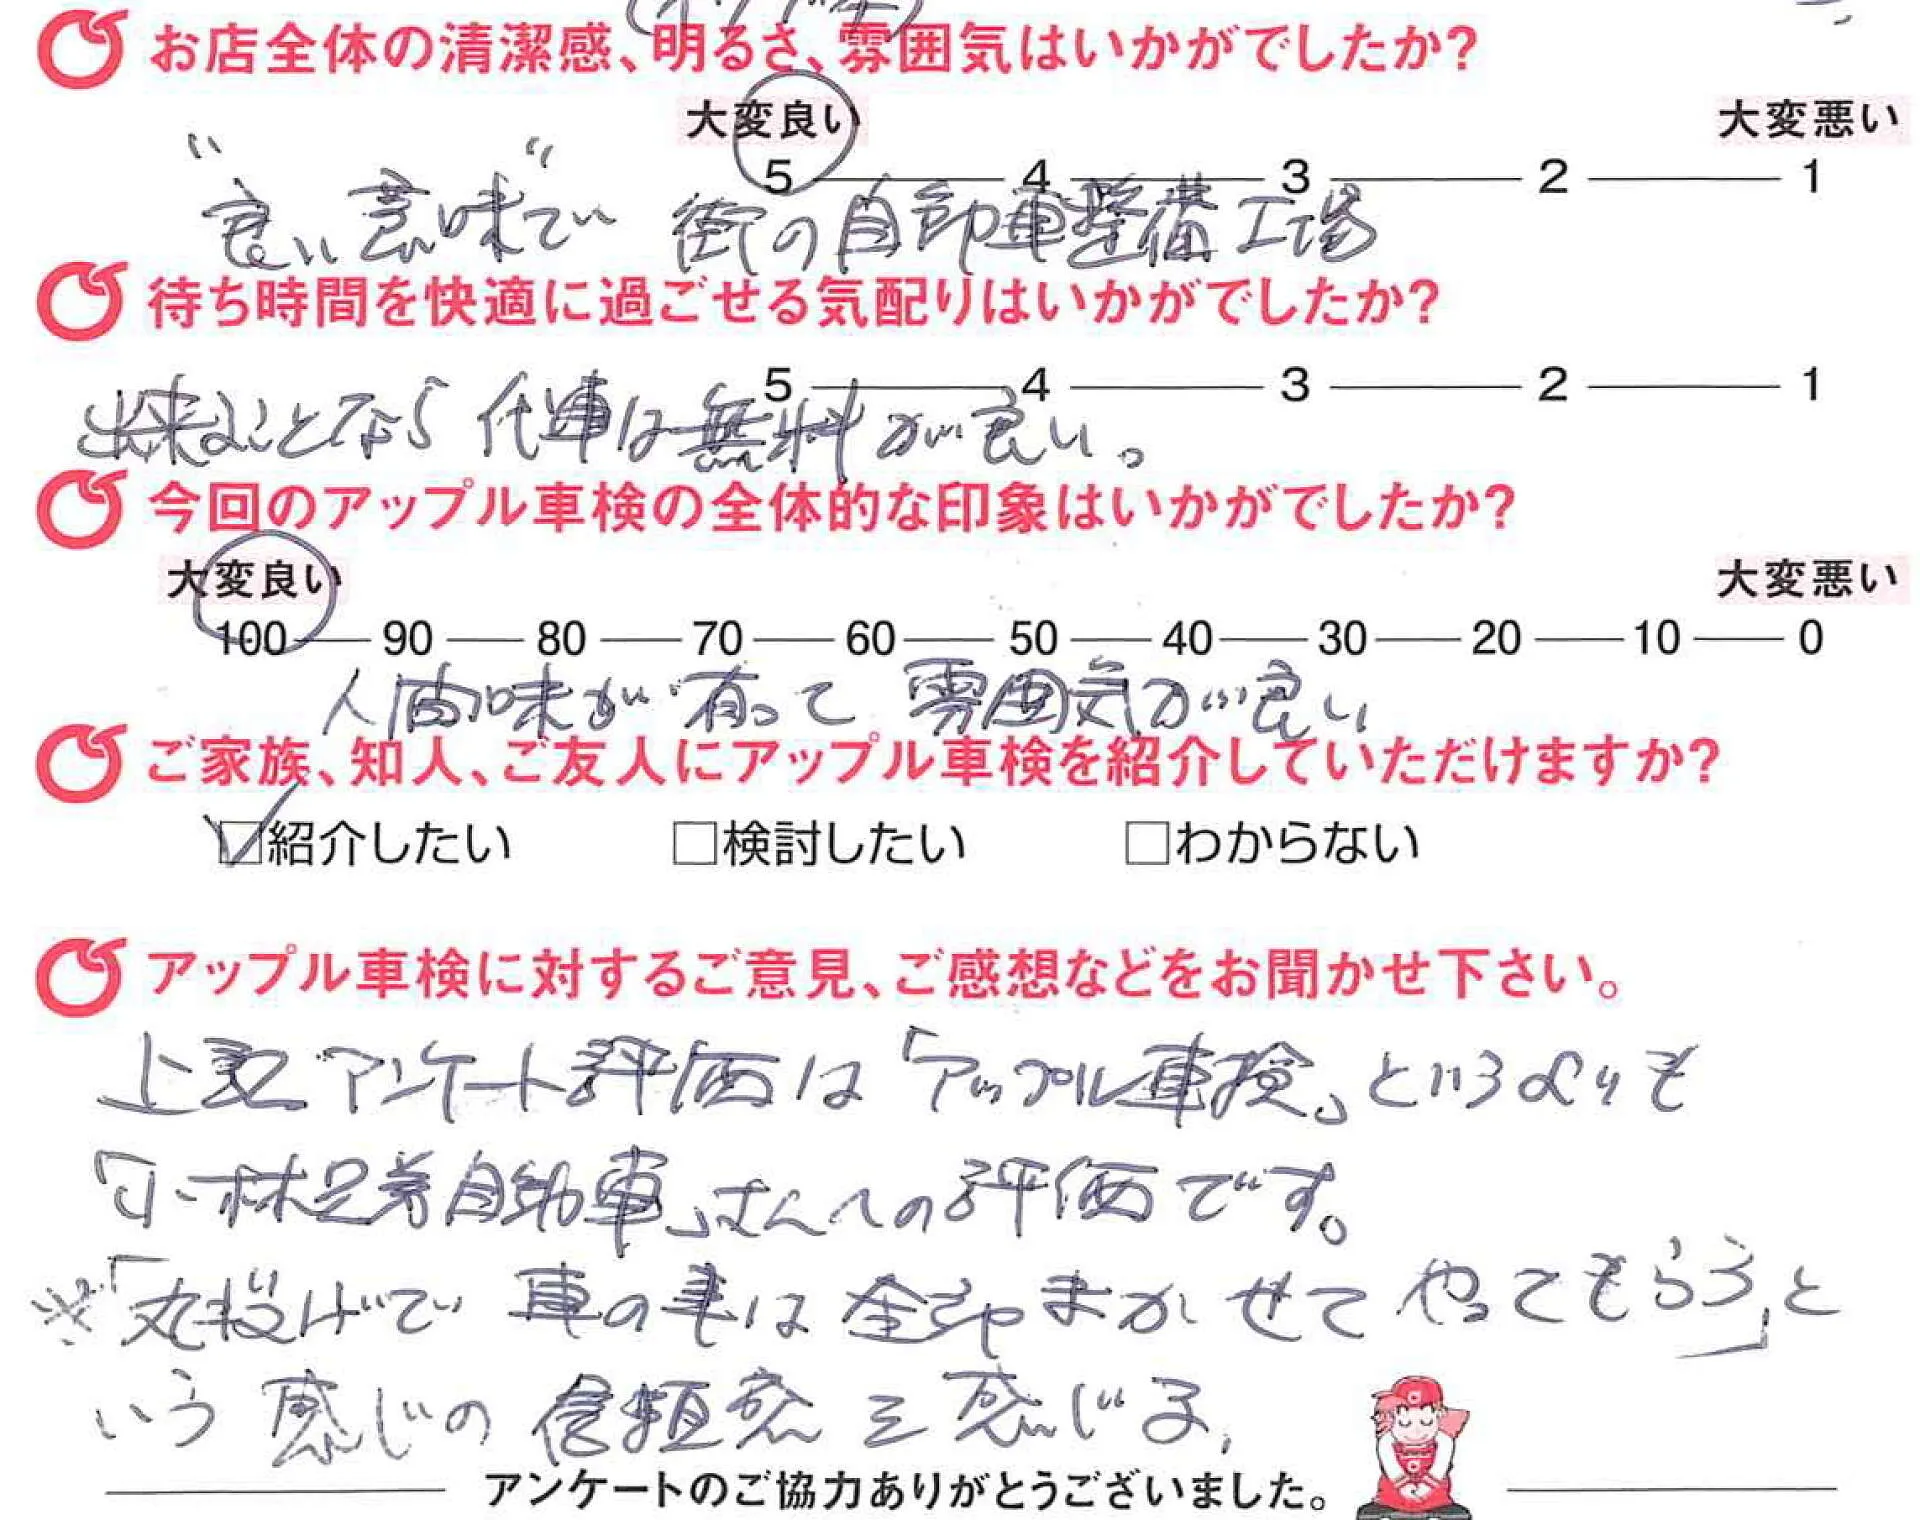 お店全体の清潔感、明るさ、雰囲気はいかがでしたか?
大変良い 大変悪い
5 4 3 2 1
"良い意味で" 街の自動車整備工場
待ち時間を快適に過ごせる気配りはいかがでしたか?
5 4 3 2 1
出来ることなら 代車は無料が良い。
今回のアップル車検の全体的な印象はいかがでしたか?
大変良い 大変悪い
100 90 80 70 60 50 40 30 20 10 0
人間味が有って 雰囲気が良い
ご家族、知人、ご友人にアップル車検を紹介していただけますか?
☑紹介したい □検討したい □わからない
アップル車検に対するご意見、ご感想などをお聞かせ下さい。
上記アンケート評価は「アップル車検」というよりも
「小林兄弟自動車」さんへの評価です。
※「丸投げで 車の事は 全部まかせて やってもらう」と
いう 感じの 信頼感を感じる,
アンケートのご協力ありがとうございました。